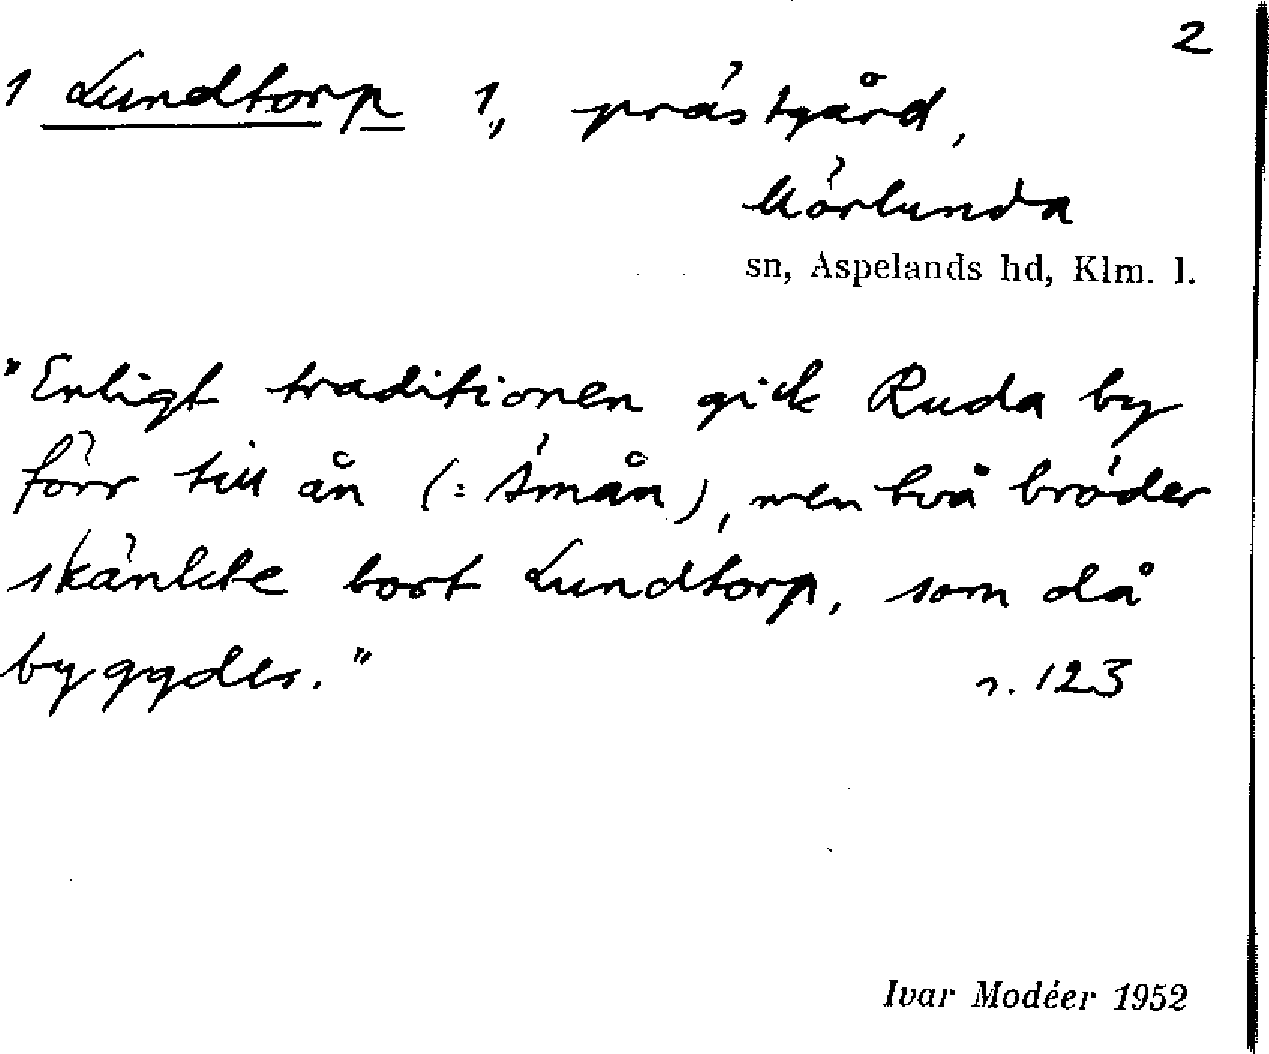 2
1 Lundtorp 1,, prästgård,
Mörlunda
sn, Aspelands hd, Klm. l.
"Enligt traditionen gick Ruda by
förr till ån (: Emån), men två bröder
skänkte bort Lundtorp, som då
byggdes."
s. 123
Ivar Modéer 1952